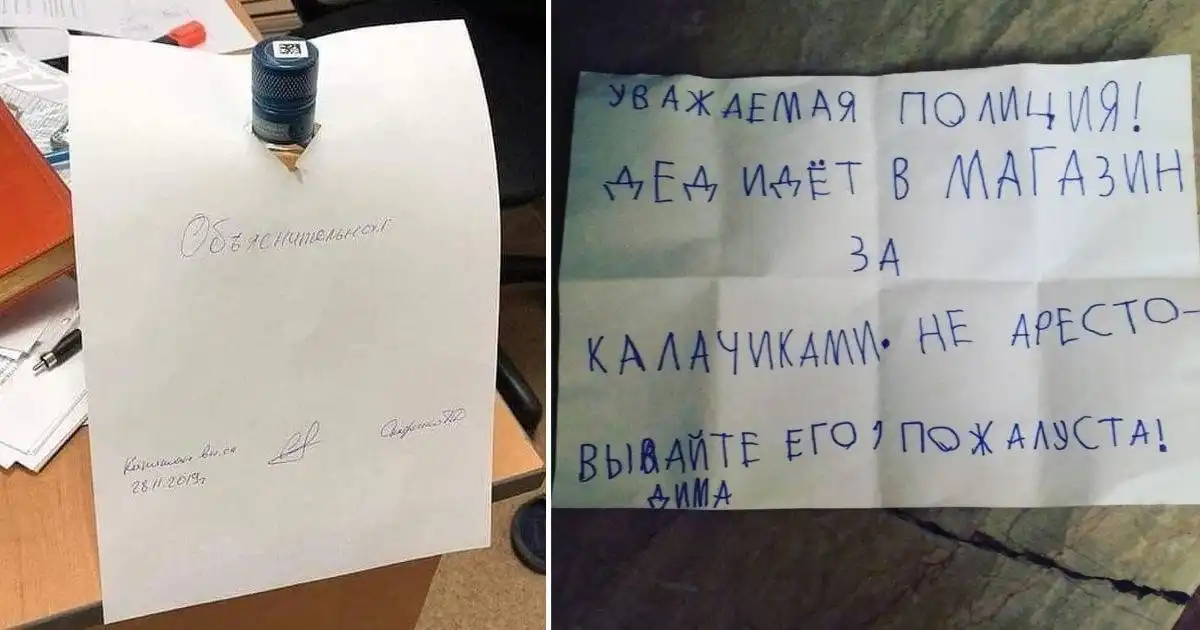 Объяснительная
28.11.2019г
УВАЖАЕМАЯ ПОЛИЦИЯ!
ДЕД ИДЁТ В МАГАЗИН
ЗА
КАЛАЧИКАМИ. НЕ АРЕСТО-
ВЫВАЙТЕ ЕГО, ПОЖАЛУСТА!
ДИМА